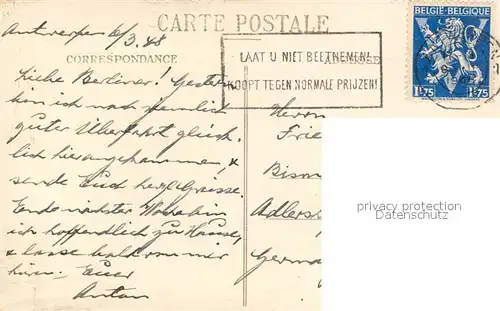 Antwerpen 6/3.48
CARTE POSTALE
BELGIE-BELGIQUE
CORRESPONDANCE
LAAT U NIET BEETNEMEN!
KOOPT TEGEN NORMALE PRIJZEN!
ADRESSE
1F75 1F75
Liebe Berliner! Gestern
bin ich nach ziemlich
guter Überfahrt glück-
lich hier angekommen, &
sende Euch herzl. Grüsse.
Ende nächster Woche bin
ich hoffentlich zu Hause,
& lasse bald von mir
hören. Euer
Anton
Herrn
Frie
Bism
Adlers
Germa
privacy protection
Datenschutz